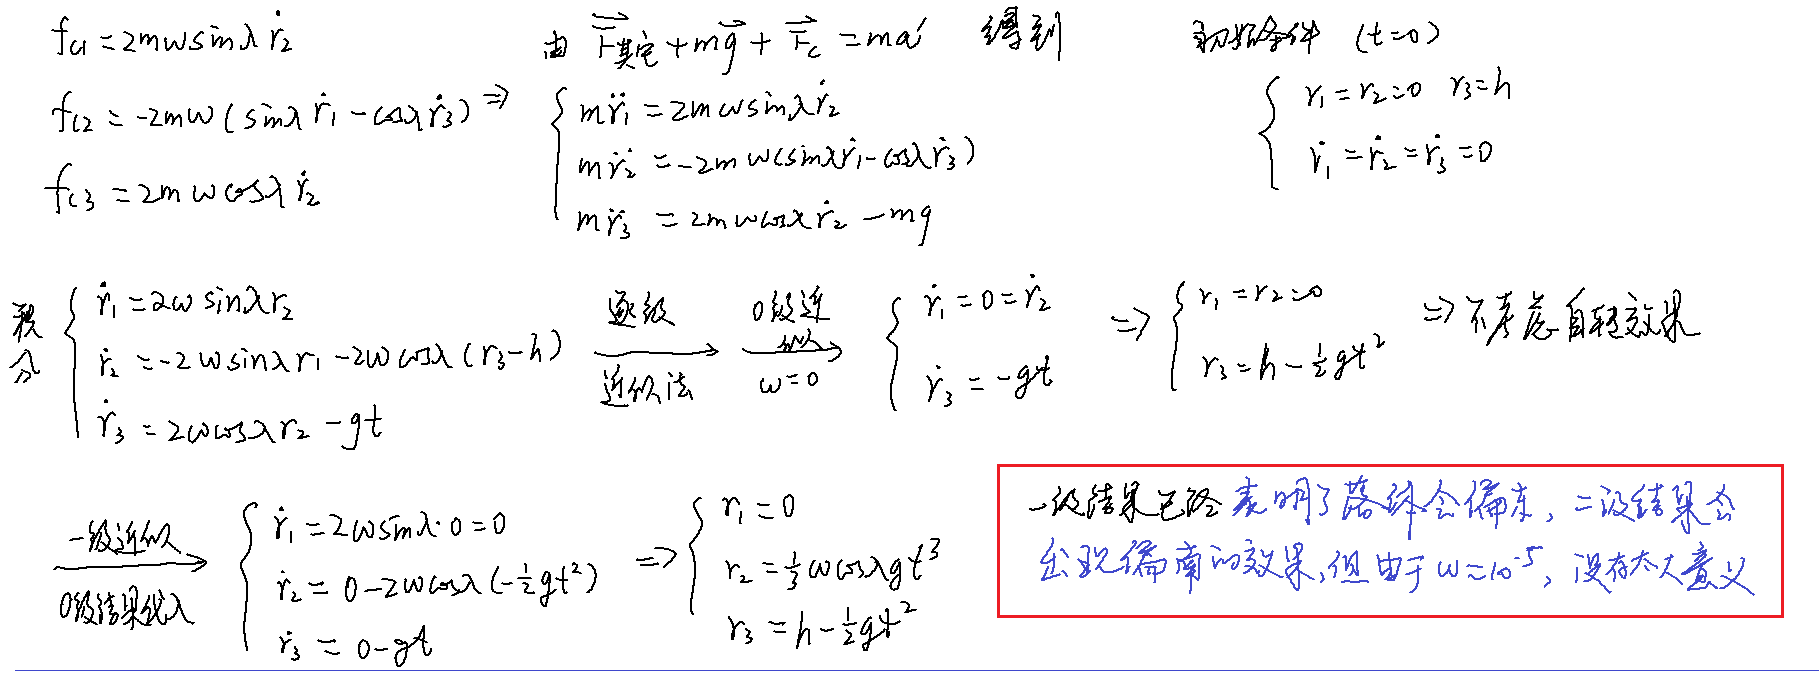 f_{c1} = 2mω sinλ ṙ₂
f_{c2} = -2mω (sinλ ṙ₁ - cosλ ṙ₃) ⇒
f_{c3} = 2mω cosλ ṙ₂
由 F⃗其它 + mg⃗ + F⃗_c = ma⃗′ 得到
{ m r̈₁ = 2mω sinλ ṙ₂
m r̈₂ = -2mω (sinλ ṙ₁ - cosλ ṙ₃)
m r̈₃ = 2mω cosλ ṙ₂ - mg
初始条件 (t=0)
{ r₁ = r₂ = 0 r₃ = h
ṙ₁ = ṙ₂ = ṙ₃ = 0
积分 { ṙ₁ = 2ω sinλ r₂
ṙ₂ = -2ω sinλ r₁ - 2ω cosλ (r₃ - h)
ṙ₃ = 2ω cosλ r₂ - gt
逐级
近似法
0级近似
ω = 0
{ ṙ₁ = 0 = ṙ₂
ṙ₃ = -gt
⇒ { r₁ = r₂ = 0
r₃ = h - ½gt²
⇒ 不考虑自转效果
一级近似
0级结果代入
{ ṙ₁ = 2ω sinλ · 0 = 0
ṙ₂ = 0 - 2ω cosλ (-½gt²)
ṙ₃ = 0 - gt
⇒ { r₁ = 0
r₂ = ⅓ω cosλ gt³
r₃ = h - ½gt²
一级结果已经表明了落体会偏东, 二级结果会
出现偏南的效果, 但由于 ω≈10⁻⁵, 没有太大意义